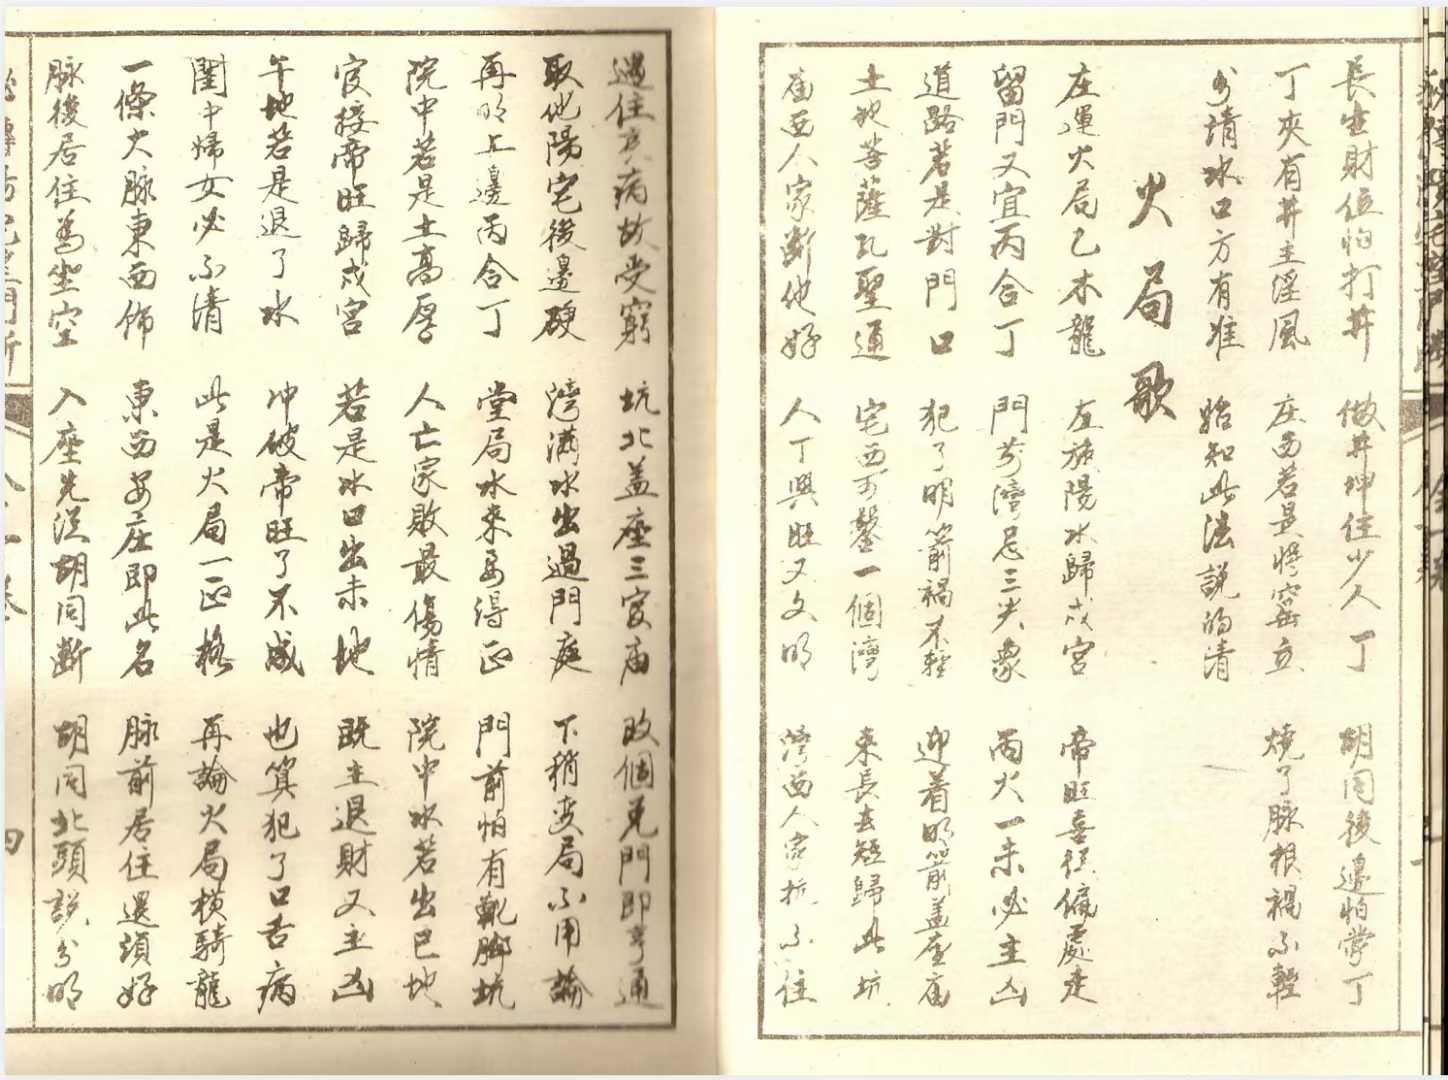 長生財位怕打井 做井坤住少人丁 胡同後邊怕掌丁
丁夾有井主淫風 庄西若是將窑立 燒了脉根禍不輕
分清水口方有准 始知此法説的清
火局歌
庄運火局乙木龍 左旋陽水歸戌宮 帝旺喜從偏處走
留門又宜丙合丁 門前灣忌三尖象 丙火一未必主凶
道路若是對門口 犯了明箭禍不輕 迎着明箭盖座庙
土地菩薩孔聖通 宅西可鑿一個灣 東長去短歸此坑
崔西人家斷他好 人丁興旺又文明 灣西人家抗不住
過住病故受窮 坑北盖座三官庙 改個兑門即亨通
取他陽宅後邊硬 灣滿水出過門庭 下稍变局不用論
再明上邊丙合丁 堂局水来要得正 門前怕有靴脚坑
院中若是土高厚 人亡家敗最傷情 院中水若出巳地
官接帝旺歸戌宮 若是水口出未地 既主退財又主凶
午地若是退了水 冲破帝旺了不成 也算犯了口舌病
閨中婦女必不清 此是火局一正格 再論火局横騎龍
一條火脉東西佈 東西安庄即此名 脉前居住還須好
脉後居住為坐空 入座先從胡同断 胡同北頭説分明